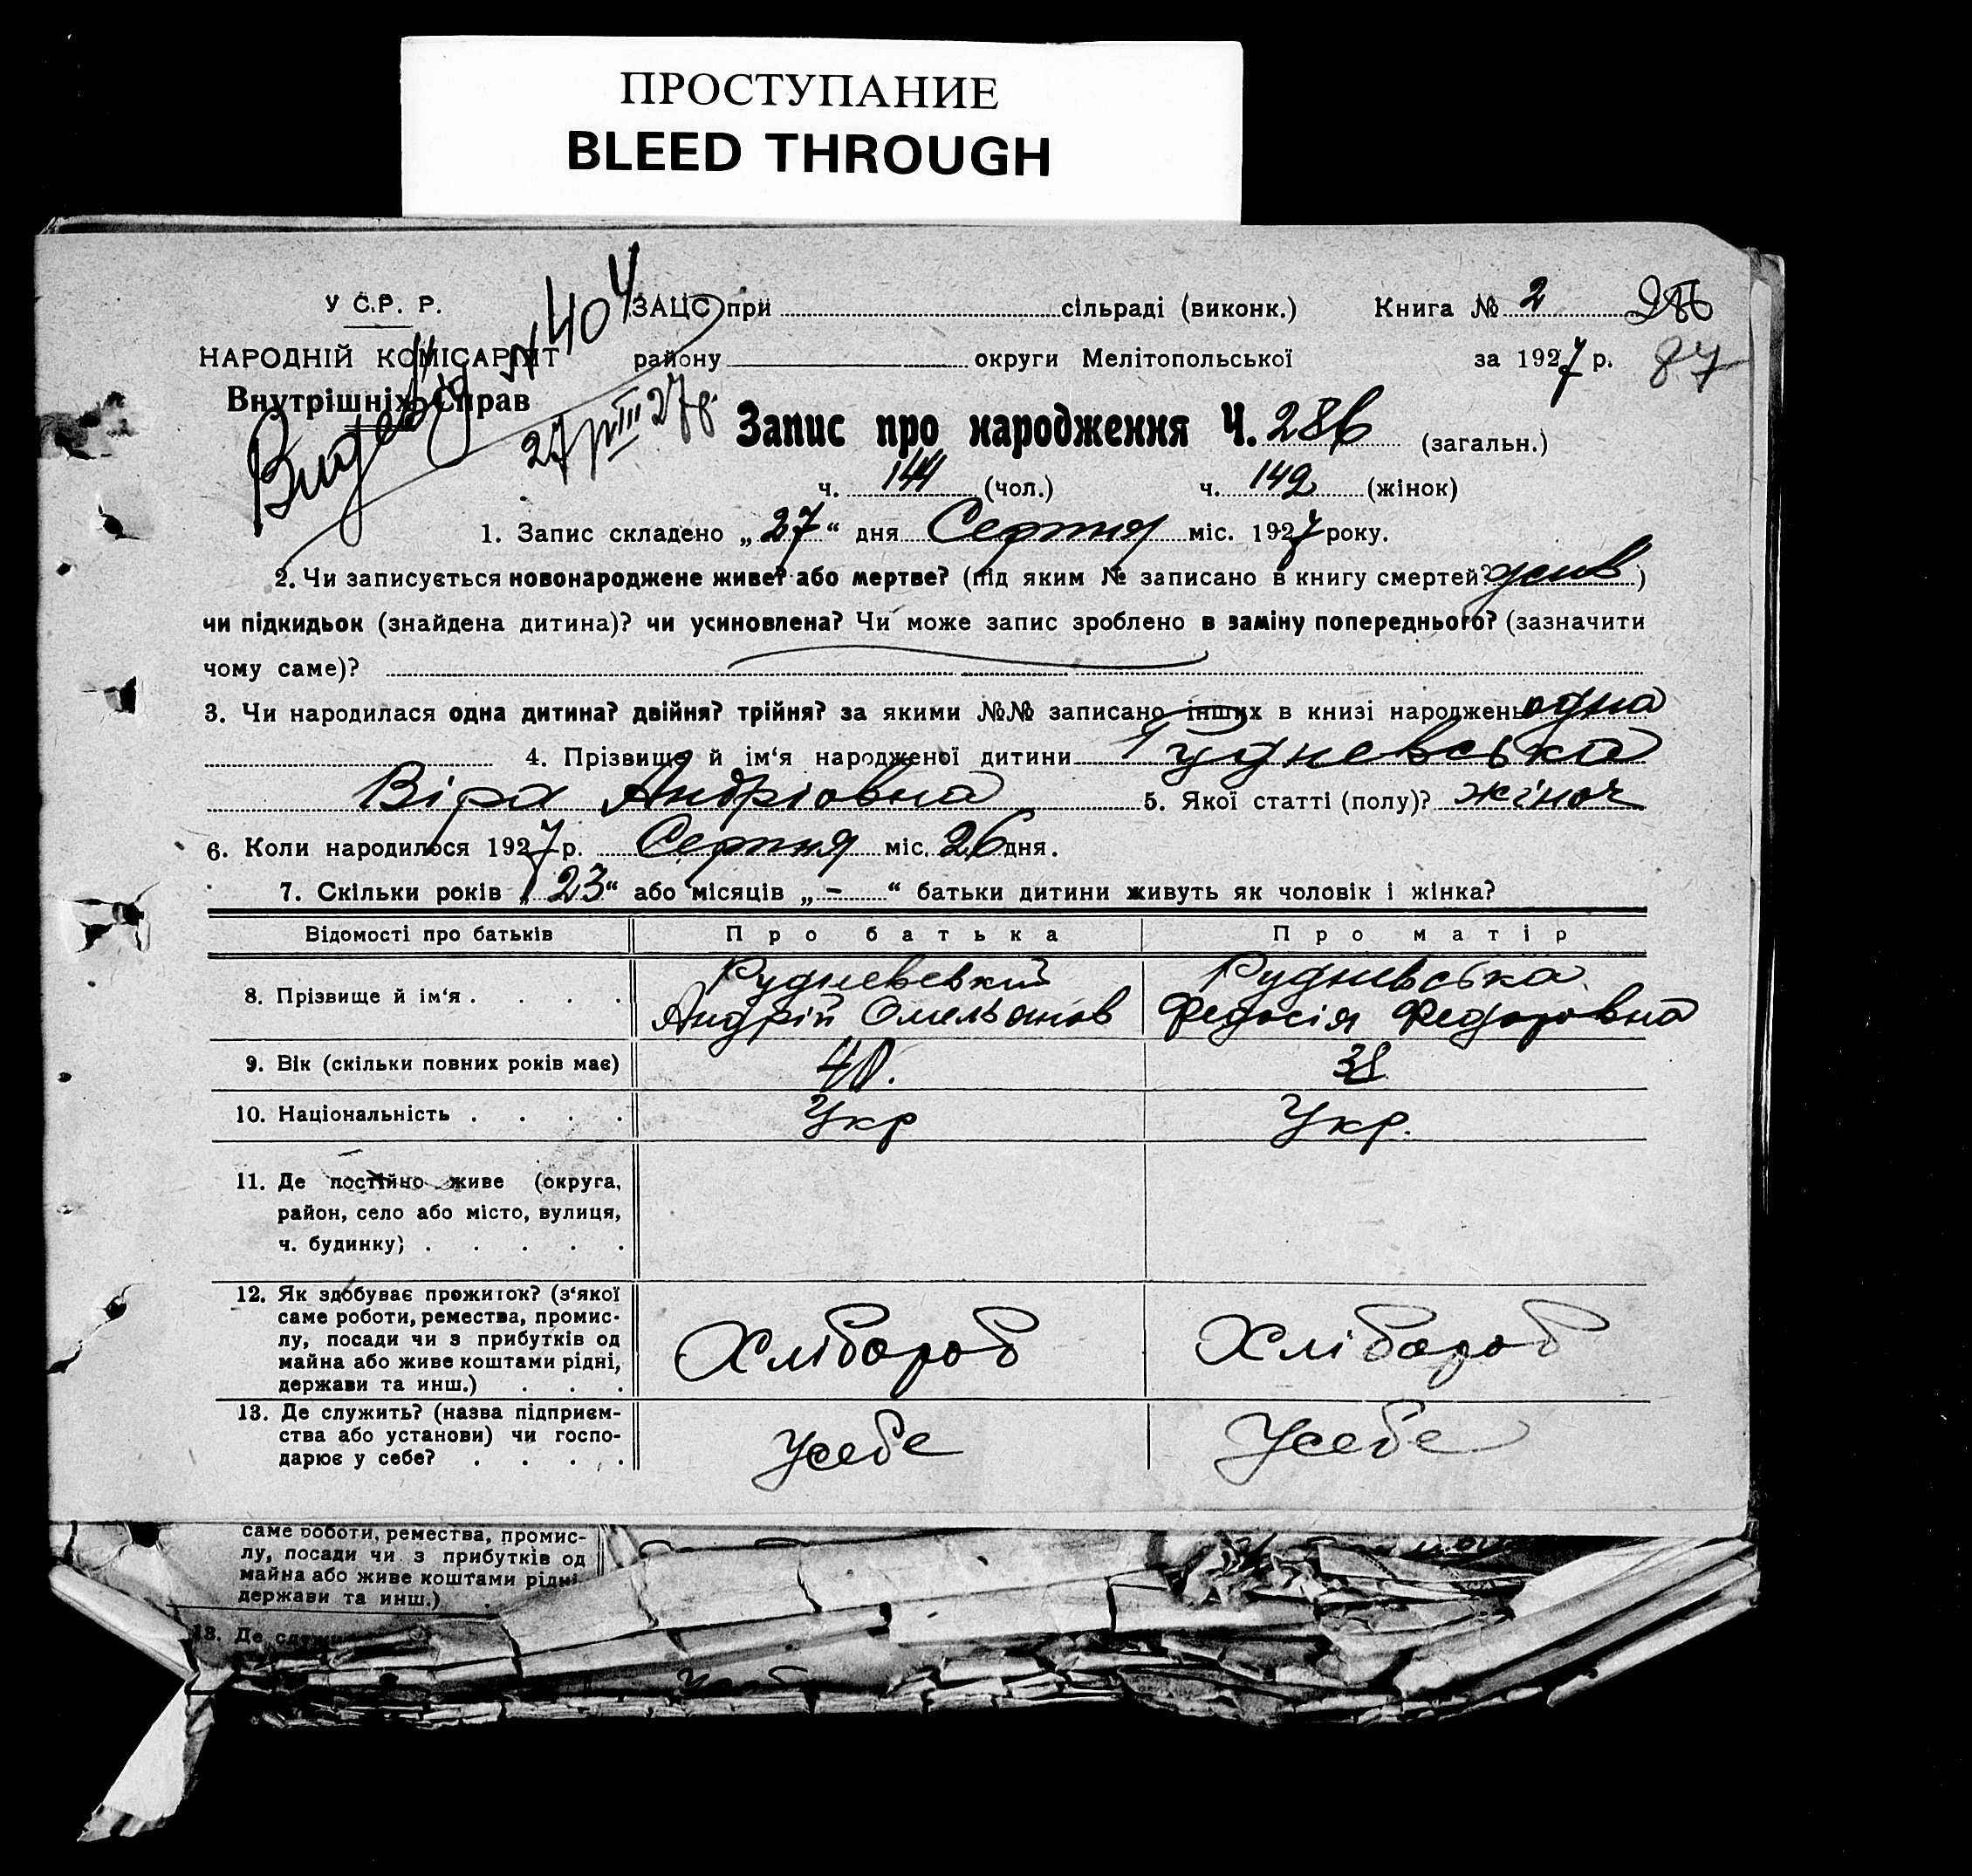 ПРОСТУПАНИЕ
BLEED THROUGH
У С.Р. Р.
ЗАЦС при сільраді (виконк.) Книга № 2
НАРОДНІЙ КОМІСАРІЯТ
Внутрішніх Справ
N 404
району округи Мелітопольської за 1927 р. 87
27/VIII 27 р.
Запис про народження Ч. 286 (загальн.)
ч. 144 (чол.) ч. 142 (жінок)
1. Запис складено „27“ дня Серпня міс. 1927 року.
2. Чи записується новонароджене живе? або мертве? (під яким № записано в книгу смертей? )
чи підкидьок (знайдена дитина)? чи усиновлена? Чи може запис зроблено в заміну попереднього? (зазначити
чому саме)?
3. Чи народилася одна дитина? двійня? трійня? за якими №№ записано інших в книзі народжень одна
4. Прізвище й ім‘я народженої дитини Рудневська
Віра Андріовна 5. Якої статті (полу)? жіноч
6. Коли народилося 1927 р. Серпня міс. 26 дня.
7. Скільки років „23“ або місяців „-“ батьки дитини живуть як чоловік і жінка?
Відомості про батьків Про батька Про матір
8. Прізвище й ім‘я . . . . Рудневський Андрій Омельянов Руднівська Федосія Федоровна
9. Вік (скільки повних років має) 40. 38
10. Національність . . . . Укр Укр.
11. Де постійно живе (округа,
район, село або місто, вулиця,
ч. будинку) . . . . .
12. Як здобуває прожиток? (з‘якої
саме роботи, ремества, промис-
лу, посади чи з прибутків од
майна або живе коштами рідні,
держави та инш.) . . .
Хлібороб Хлібороб
13. Де служить? (назва підприєм-
ства або установи) чи госпо-
дарює у себе? . . . .
Усебе Усебе
саме роботи, ремества, промис-
лу, посади чи з прибутків од
майна або живе коштами рідні
держави та инш.)
13. Де